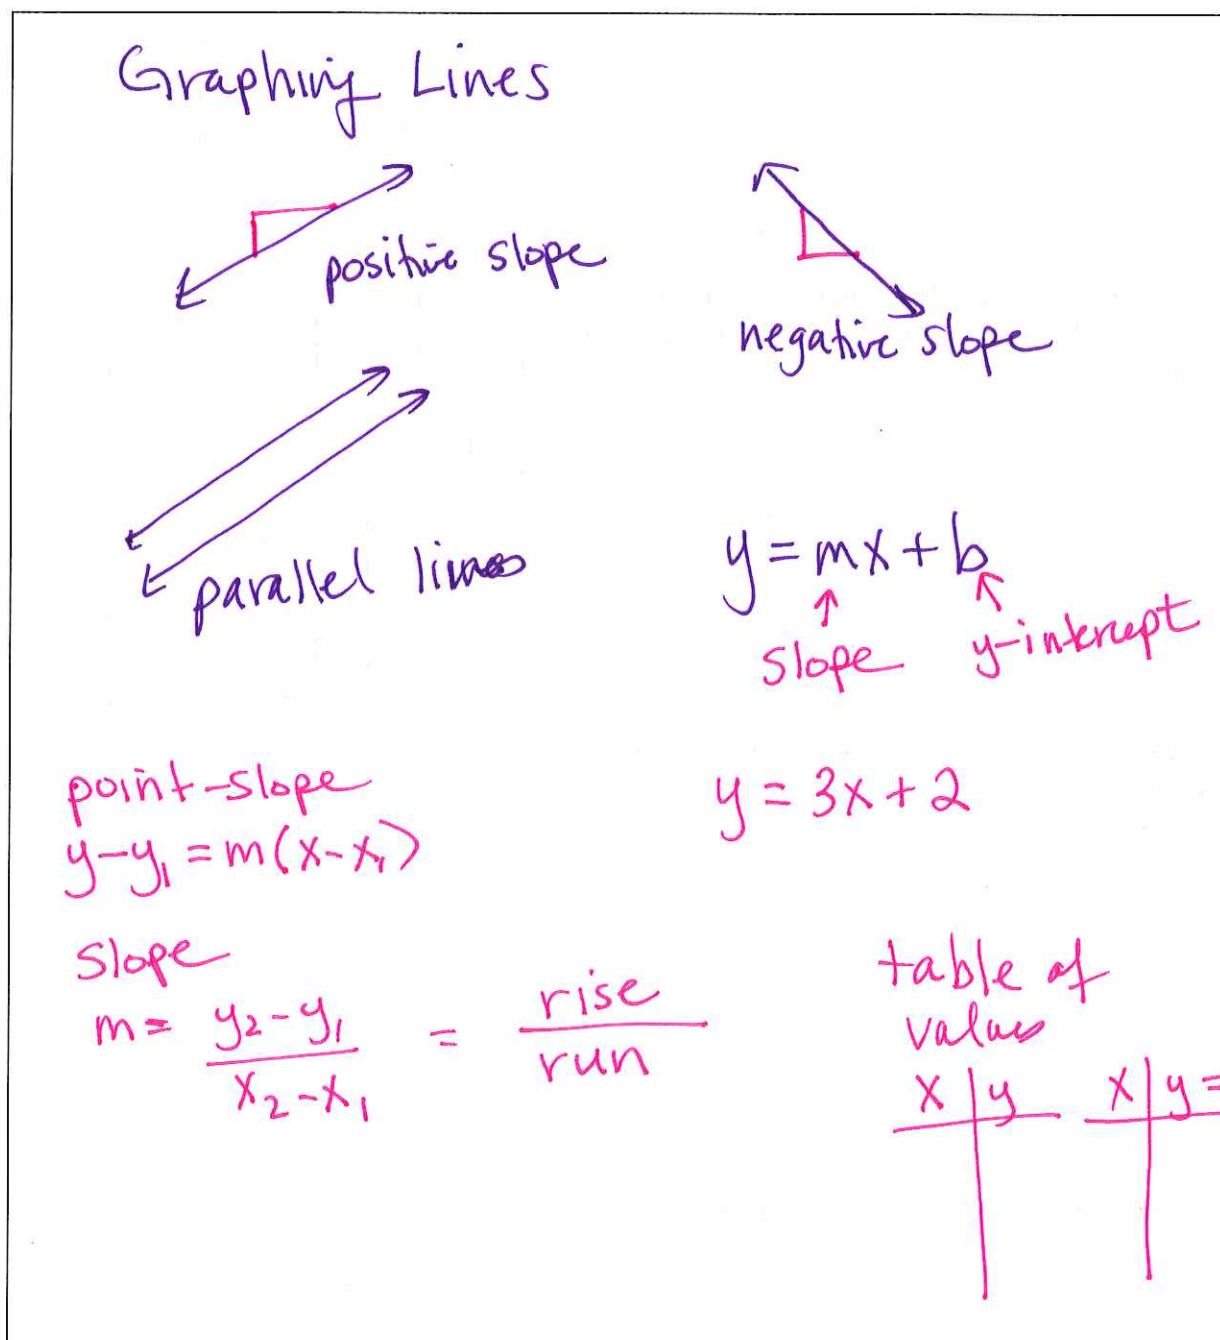 Graphing Lines
positive slope
negative slope
parallel lines
y = mx + b
slope
y-intercept
point-slope
y - y₁ = m(x - x₁)
y = 3x + 2
slope
m = y₂ - y₁ / x₂ - x₁ = rise / run
table of
values
x | y
x | y =